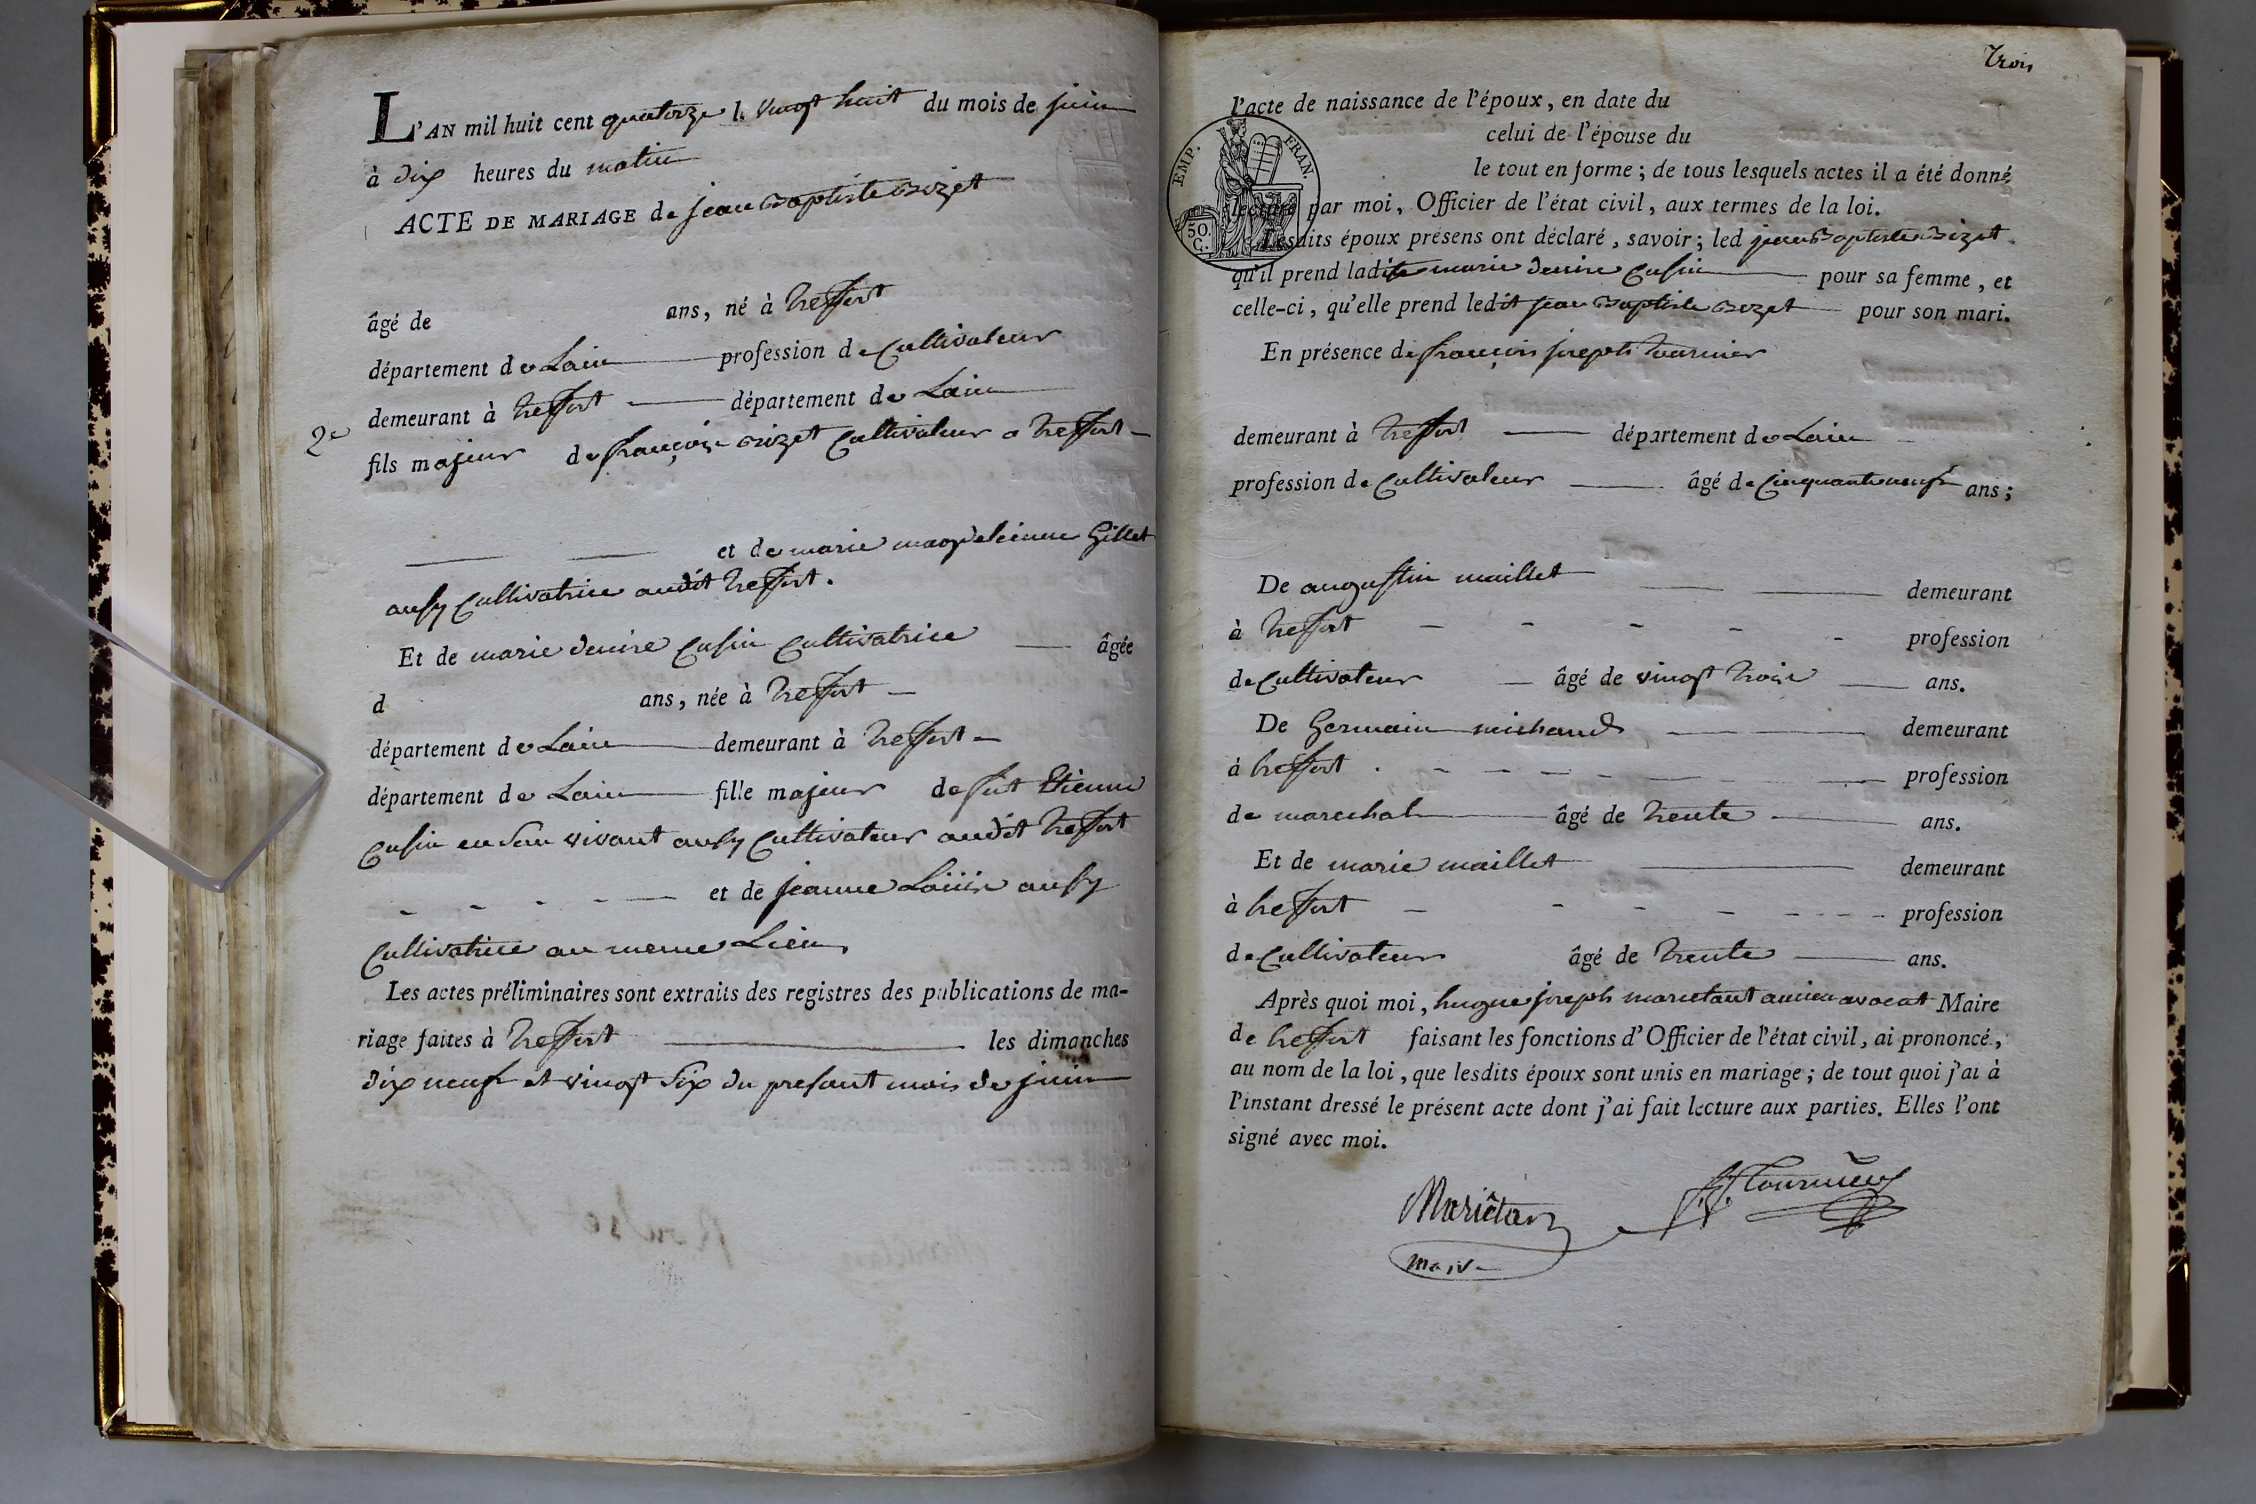 L'AN mil huit cent quatorze le vingt huit du mois de juin
à dix heures du matin
ACTE DE MARIAGE de jean Baptiste Bozet
âgé de ans, né à treffort
département de Lain profession de Cultivateur
demeurant à treffort département de Lain
2e
fils majeur de françois Bozet Cultivateur a treffort
et de marie magdeleinne Gillet
aussy Cultivatrice audit treffort.
Et de marie denise Cusin Cultivatrice âgée
d ans, née à treffort
département de Lain demeurant à treffort
département de Lain fille majeur de fut Etienne
Cusin en son vivant aussy Cultivateur audit treffort
et de jeanne aussy
Cultivatrice au meme Lieu
Les actes préliminaires sont extraits des registres des publications de ma-
riage faites à treffort les dimanches
dix neuf et vingt six du presant mois de juin
Trois
l'acte de naissance de l'époux, en date du
celui de l'épouse du
le tout en forme ; de tous lesquels actes il a été donné
lecture par moi, Officier de l'état civil, aux termes de la loi.
EMP. FRAN.
50.
C.
Lesdits époux présens ont déclaré, savoir ; led jean Baptiste Bozet
qu'il prend ladite marie denise Cusin pour sa femme, et
celle-ci, qu'elle prend ledit jean Baptiste Bozet pour son mari.
En présence de françois joseph tournier
demeurant à treffort département de Lain
profession de Cultivateur âgé de Cinquante neuf ans ;
De augustin maillet demeurant
à treffort profession
de Cultivateur âgé de vingt trois ans.
De Germain michaud demeurant
à treffort profession
de marechal âgé de trente ans.
Et de marie maillet demeurant
à treffort profession
de Cultivateur âgé de trente ans.
Après quoi moi, hugue joseph marietant ancien avocat Maire
de treffort faisant les fonctions d'Officier de l'état civil, ai prononcé,
au nom de la loi, que lesdits époux sont unis en mariage ; de tout quoi j'ai à
l'instant dressé le présent acte dont j'ai fait lecture aux parties. Elles l'ont
signé avec moi.
Mariêtan
maire